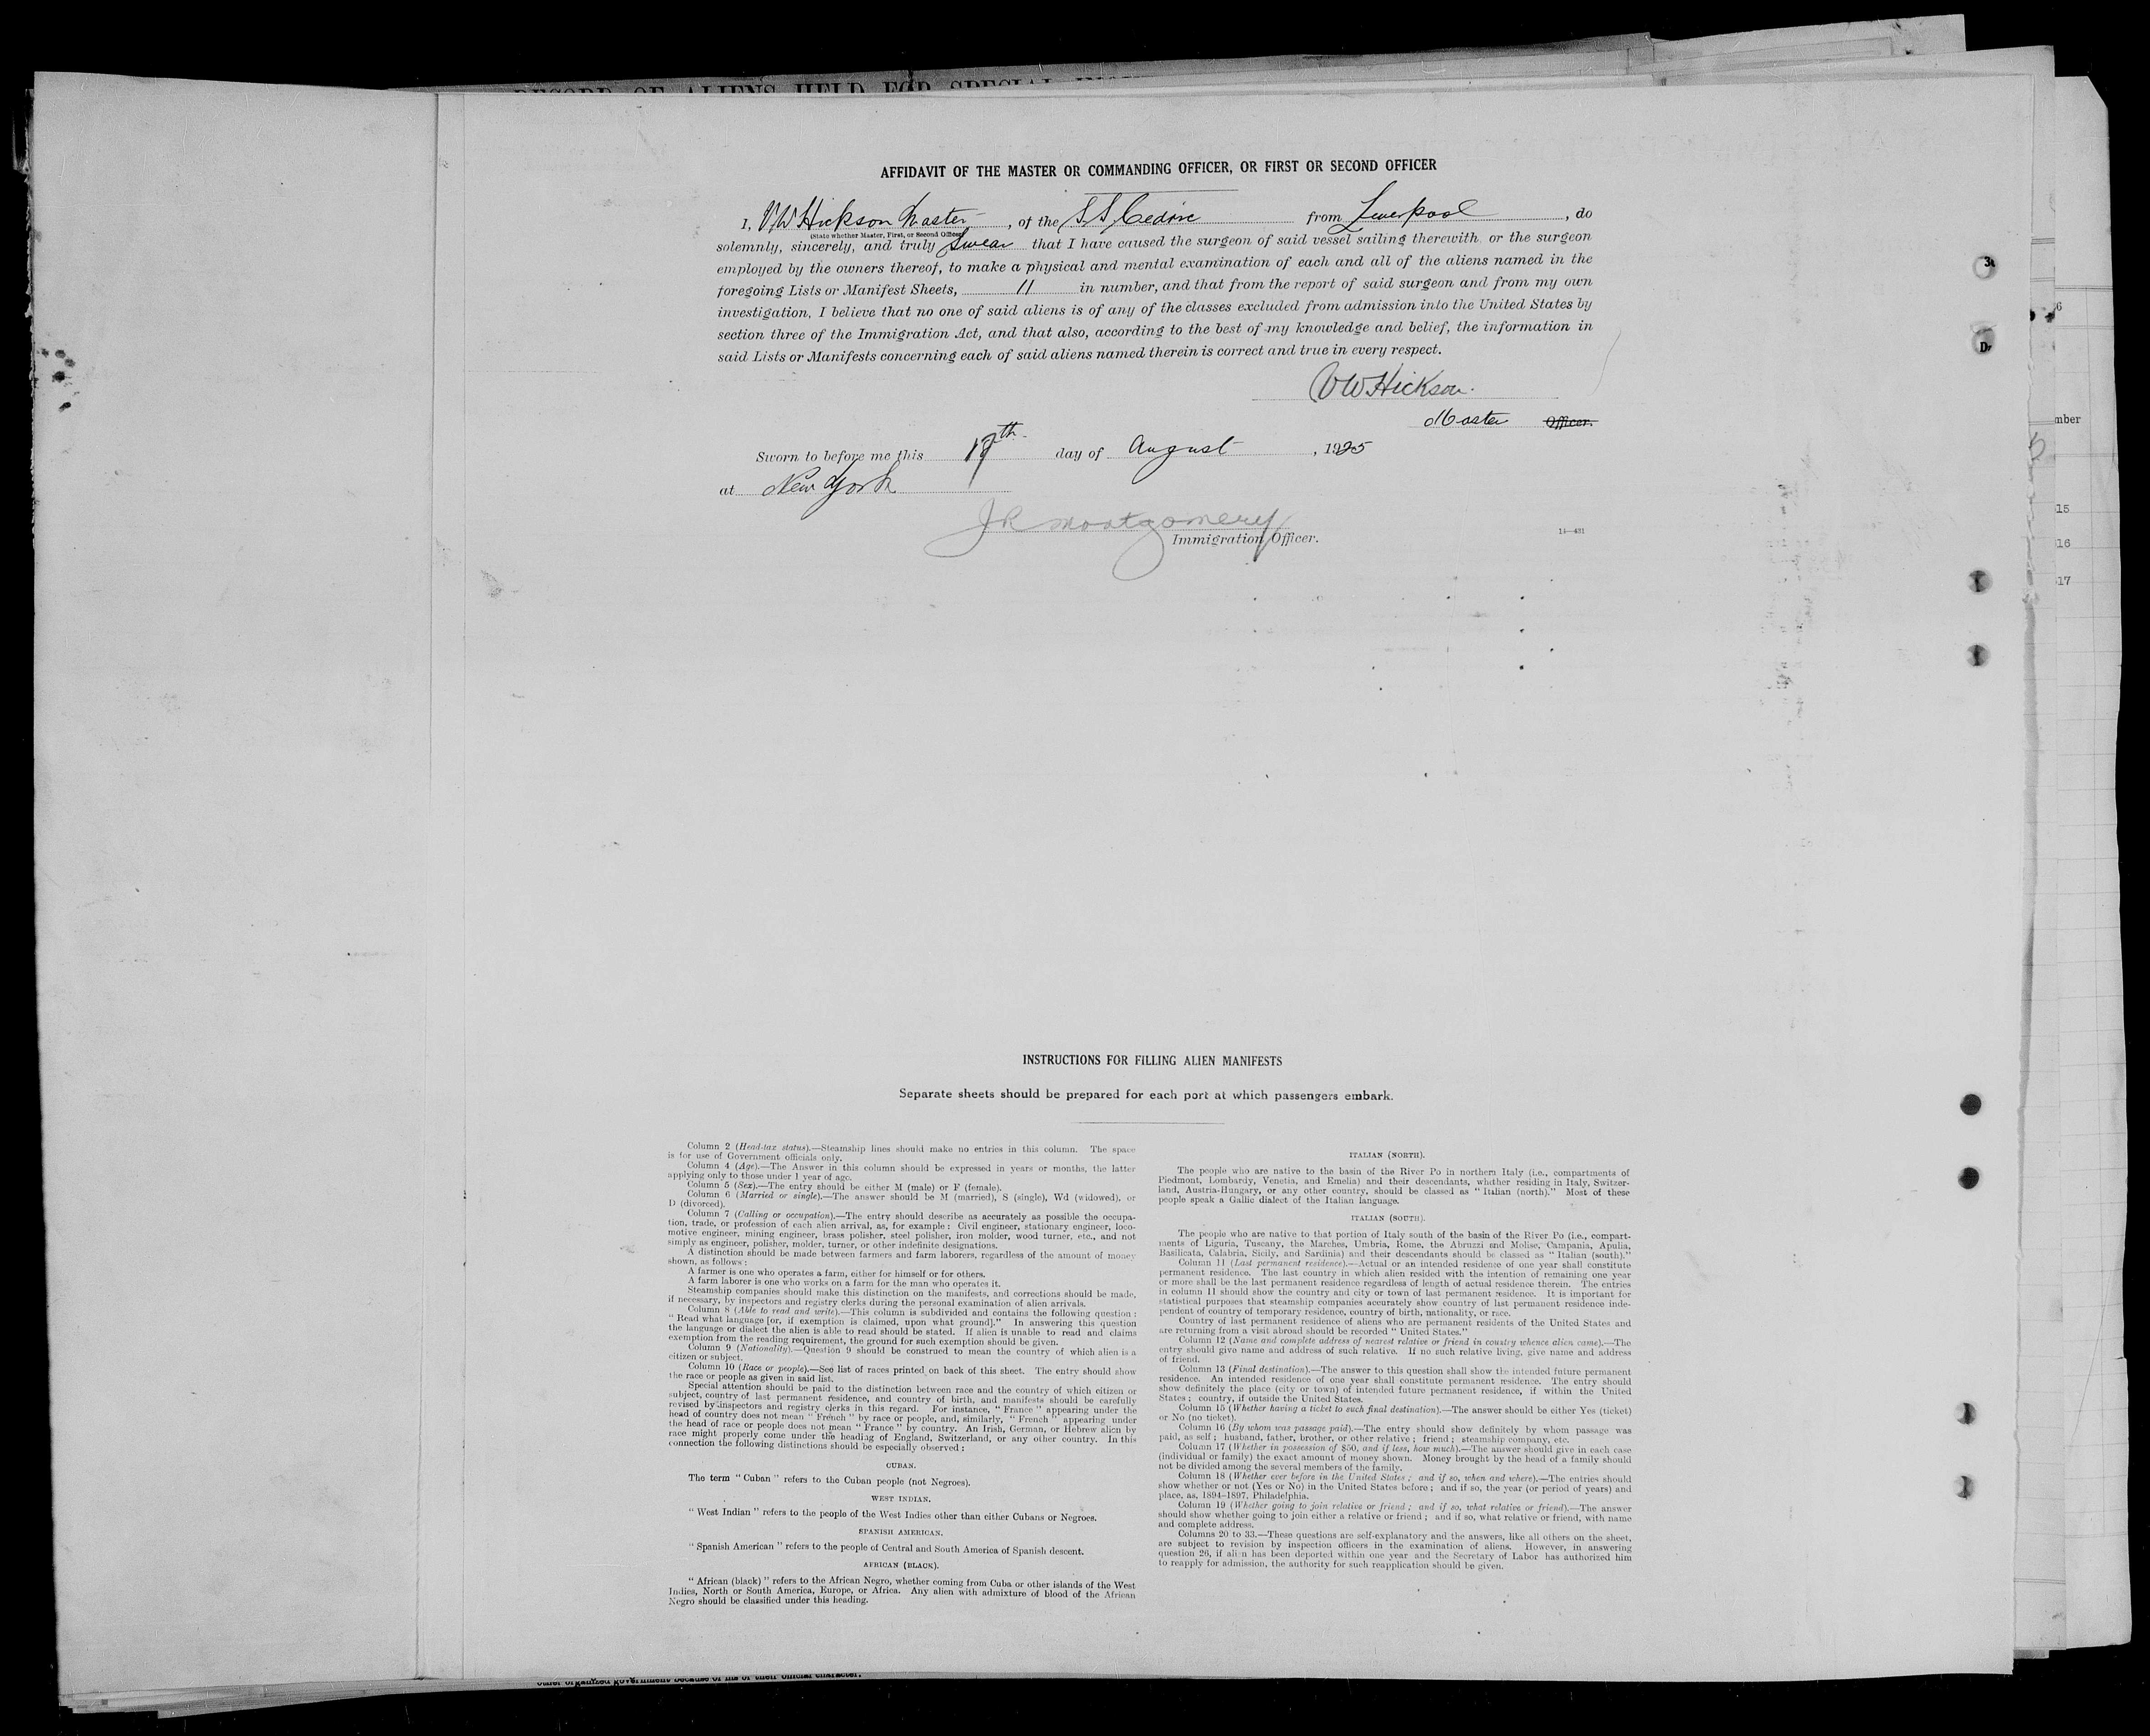 RECORD OF ALIENS HELD FOR SPECIAL
AFFIDAVIT OF THE MASTER OR COMMANDING OFFICER, OR FIRST OR SECOND OFFICER
I, VW Hickson Master, of the S.S. Cedric from Liverpool, do
(State whether Master, First, or Second Officer)
solemnly, sincerely, and truly swear that I have caused the surgeon of said vessel sailing therewith or the surgeon
employed by the owners thereof, to make a physical and mental examination of each and all of the aliens named in the
foregoing Lists or Manifest Sheets, 11 in number, and that from the report of said surgeon and from my own
investigation, I believe that no one of said aliens is of any of the classes excluded from admission into the United States by
section three of the Immigration Act, and that also, according to the best of my knowledge and belief, the information in
said Lists or Manifests concerning each of said aliens named therein is correct and true in every respect.
VW Hickson.
Master Officer.
Sworn to before me this 17th day of August, 1925
at New York
JR Montgomery
Immigration Officer.
INSTRUCTIONS FOR FILLING ALIEN MANIFESTS
Separate sheets should be prepared for each port at which passengers embark.
Column 2 (Head-tax status).—Steamship lines should make no entries in this column. The space
is for use of Government officials only.
Column 4 (Age).—The Answer in this column should be expressed in years or months, the latter
applying only to those under 1 year of age.
Column 5 (Sex).—The entry should be either M (male) or F (female).
Column 6 (Married or single).—The answer should be M (married), S (single), Wd (widowed), or
D (divorced).
Column 7 (Calling or occupation).—The entry should describe as accurately as possible the occupa-
tion, trade, or profession of each alien arrival, as, for example: Civil engineer, stationary engineer, loco-
motive engineer, mining engineer, brass polisher, steel polisher, iron molder, wood turner, etc., and not
simply as engineer, polisher, molder, turner, or other indefinite designations.
A distinction should be made between farmers and farm laborers, regardless of the amount of money
shown, as follows:
A farmer is one who operates a farm, either for himself or for others.
A farm laborer is one who works on a farm for the man who operates it.
Steamship companies should make this distinction on the manifests, and corrections should be made,
if necessary, by inspectors and registry clerks during the personal examination of alien arrivals.
Column 8 (Able to read and write).—This column is subdivided and contains the following question:
"Read what language [or, if exemption is claimed, upon what ground]." In answering this question
the language or dialect the alien is able to read should be stated. If alien is unable to read and claims
exemption from the reading requirement, the ground for such exemption should be given.
Column 9 (Nationality).—Question 9 should be construed to mean the country of which alien is a
citizen or subject.
Column 10 (Race or people).—See list of races printed on back of this sheet. The entry should show
the race or people as given in said list.
Special attention should be paid to the distinction between race and the country of which citizen or
subject, country of last permanent residence, and country of birth, and manifests should be carefully
revised by inspectors and registry clerks in this regard. For instance, "France" appearing under the
head of country does not mean "French" by race or people, and, similarly, "French" appearing under
the head of race or people does not mean "France" by country. An Irish, German, or Hebrew alien by
race might properly come under the heading of England, Switzerland, or any other country. In this
connection the following distinctions should be especially observed:
CUBAN.
The term "Cuban" refers to the Cuban people (not Negroes).
WEST INDIAN.
"West Indian" refers to the people of the West Indies other than either Cubans or Negroes.
SPANISH AMERICAN.
"Spanish American" refers to the people of Central and South America of Spanish descent.
AFRICAN (BLACK).
"African (black)" refers to the African Negro, whether coming from Cuba or other islands of the West
Indies, North or South America, Europe, or Africa. Any alien with admixture of blood of the African
Negro should be classified under this heading.
ITALIAN (NORTH).
The people who are native to the basin of the River Po in northern Italy (i.e., compartments of
Piedmont, Lombardy, Venetia, and Emelia) and their descendants, whether residing in Italy, Switzer-
land, Austria-Hungary, or any other country, should be classed as "Italian (north)." Most of these
people speak a Gallic dialect of the Italian language.
ITALIAN (SOUTH).
The people who are native to that portion of Italy south of the basin of the River Po (i.e., compart-
ments of Liguria, Tuscany, the Marches, Umbria, Rome, the Abruzzi and Molise, Campania, Apulia,
Basilicata, Calabria, Sicily, and Sardinia) and their descendants should be classed as "Italian (south)."
Column 11 (Last permanent residence).—Actual or an intended residence of one year shall constitute
permanent residence. The last country in which alien resided with the intention of remaining one year
or more shall be the last permanent residence regardless of length of actual residence therein. The entries
in column 11 should show the country and city or town of last permanent residence. It is important for
statistical purposes that steamship companies accurately show country of last permanent residence inde-
pendent of country of temporary residence, country of birth, nationality, or race.
Country of last permanent residence of aliens who are permanent residents of the United States and
are returning from a visit abroad should be recorded "United States."
Column 12 (Name and complete address of nearest relative or friend in country whence alien came).—The
entry should give name and address of such relative. If no such relative living, give name and address
of friend.
Column 13 (Final destination).—The answer to this question shall show the intended future permanent
residence. An intended residence of one year shall constitute permanent residence. The entry should
show definitely the place (city or town) of intended future permanent residence, if within the United
States; country, if outside the United States.
Column 15 (Whether having a ticket to such final destination).—The answer should be either Yes (ticket)
or No (no ticket).
Column 16 (By whom was passage paid).—The entry should show definitely by whom passage was
paid, as self; husband, father, brother, or other relative; friend; steamship company, etc.
Column 17 (Whether in possession of $50, and if less, how much).—The answer should give in each case
(individual or family) the exact amount of money shown. Money brought by the head of a family should
not be divided among the several members of the family.
Column 18 (Whether ever before in the United States; and if so, when and where).—The entries should
show whether or not (Yes or No) in the United States before; and if so, the year (or period of years) and
place, as, 1894-1897, Philadelphia.
Column 19 (Whether going to join relative or friend; and if so, what relative or friend).—The answer
should show whether going to join either a relative or friend; and if so, what relative or friend, with name
and complete address.
Columns 20 to 33.—These questions are self-explanatory and the answers, like all others on the sheet,
are subject to revision by inspection officers in the examination of aliens. However, in answering
question 26, if alien has been deported within one year and the Secretary of Labor has authorized him
to reapply for admission, the authority for such reapplication should be given.
mber
15
16
17
other organized government because of his or their official character.